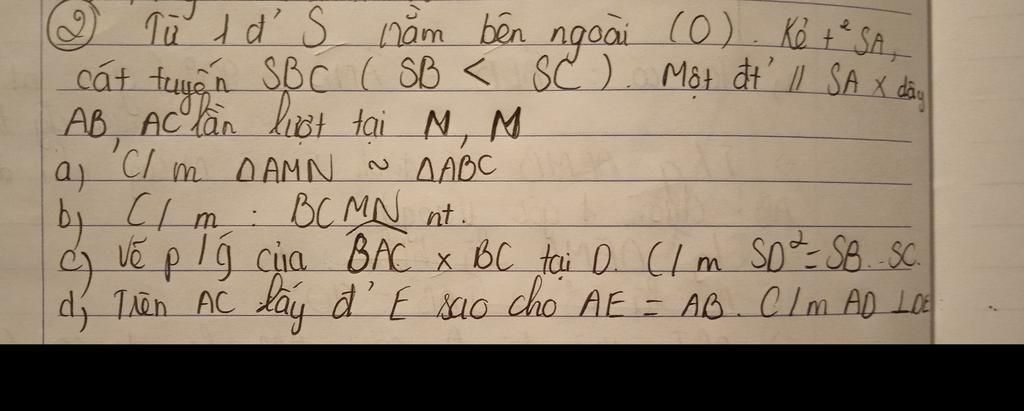 ② Từ 1 đ' S nằm bên ngoài (O). Kẻ t² SA,
cát tuyến SBC ( SB < SC ). Một đt' // SA x dây
AB, AC lần lượt tại N, M
a) C/m ΔAMN ~ ΔABC
b) C/m : BCMN nt.
c) Vẽ p/g của BAC x BC tại D. C/m SD² = SB. SC.
d) Trên AC lấy đ' E sao cho AE = AB. C/m AD ⊥OE